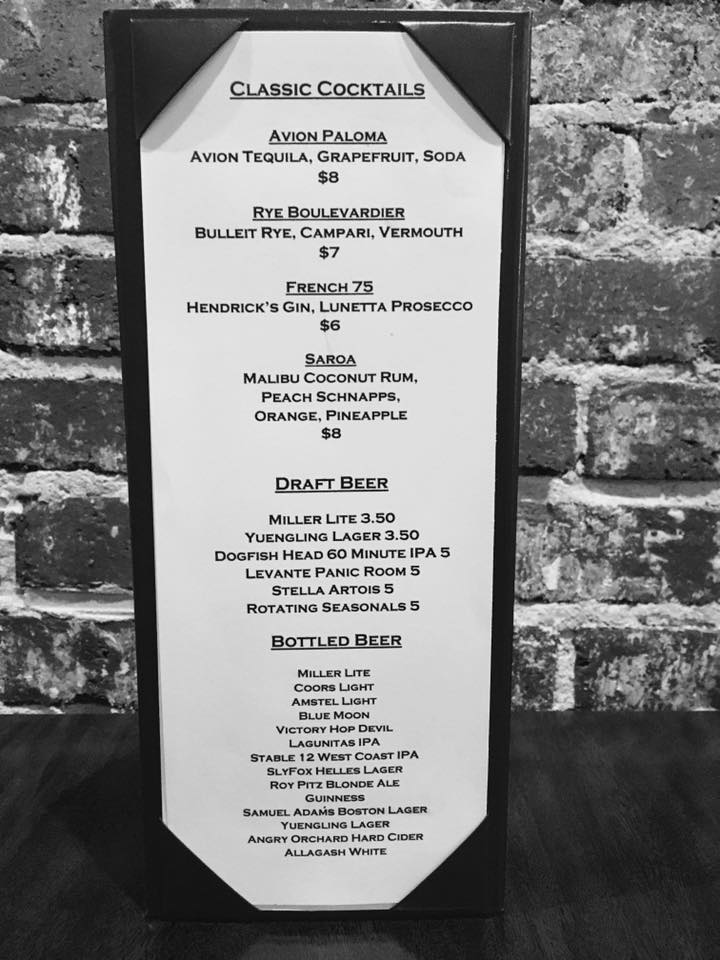 Classic Cocktails
Avion Paloma
Avion Tequila, Grapefruit, Soda
$8
Rye Boulevardier
Bulleit Rye, Campari, Vermouth
$7
French 75
Hendrick's Gin, Lunetta Prosecco
$6
Saroa
Malibu Coconut Rum,
Peach Schnapps,
Orange, Pineapple
$8
Draft Beer
Miller Lite 3.50
Yuengling Lager 3.50
Dogfish Head 60 Minute IPA 5
Levante Panic Room 5
Stella Artois 5
Rotating Seasonals 5
Bottled Beer
Miller Lite
Coors Light
Amstel Light
Blue Moon
Victory Hop Devil
Lagunitas IPA
Stable 12 West Coast IPA
SlyFox Helles Lager
Roy Pitz Blonde Ale
Guinness
Samuel Adam's Boston Lager
Yuengling Lager
Angry Orchard Hard Cider
Allagash White